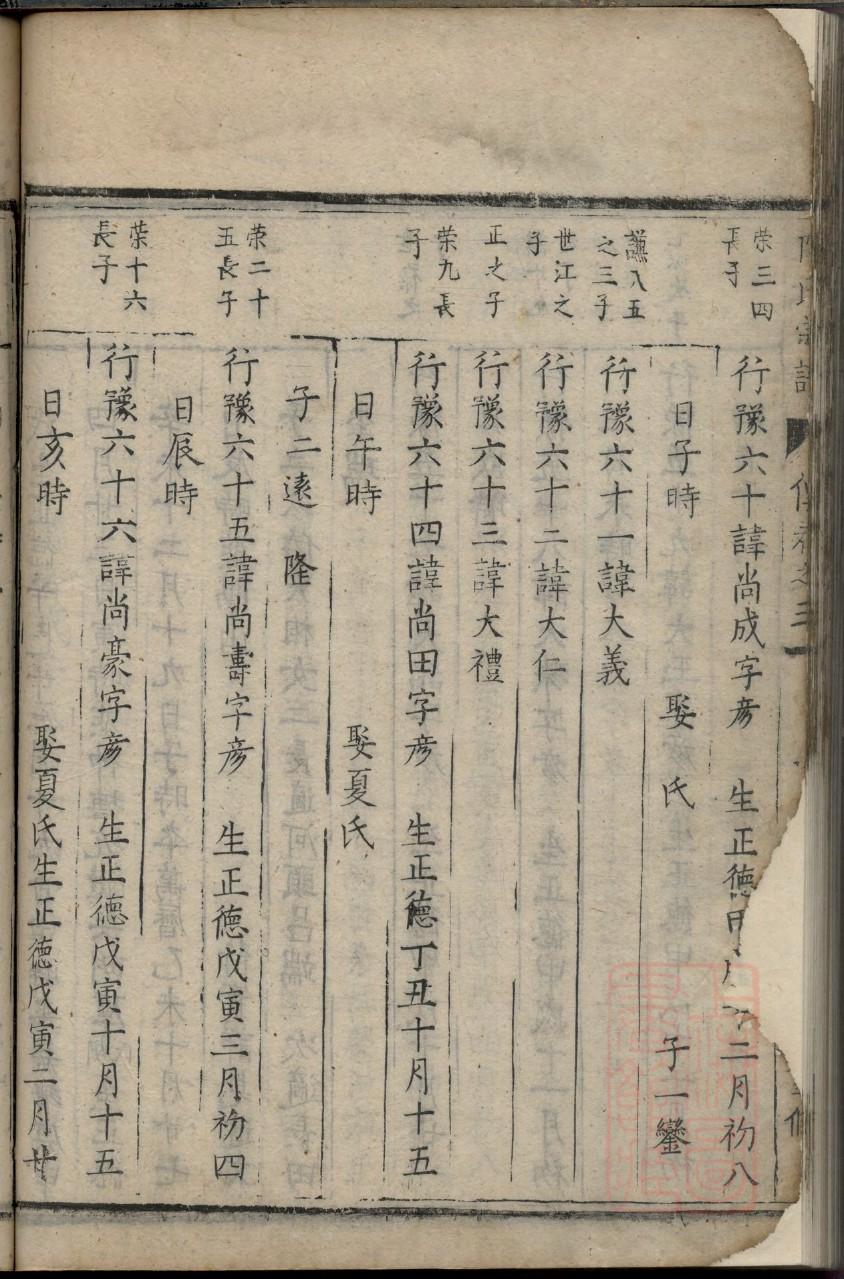 宗譜
之三
榮三四
長子
行豫六十諱尚成字彥 生正德 二月初八
日子時 娶 氏 子一鑾
謙八五
之三子
行豫六十一諱大義
世江之
子
行豫六十二諱大仁
正之子
行豫六十三諱大禮
榮九長
子
行豫六十四諱尚田字彥 生正德丁丑十月十五
日午時 娶夏氏
子二遠 隆
榮二十
五長子
行豫六十五諱尚壽字彥 生正德戊寅三月初四
日辰時
榮十六
長子
行豫六十六諱尚豪字彥 生正德戊寅十月十五
日亥時 娶夏氏生正德戊寅二月廿